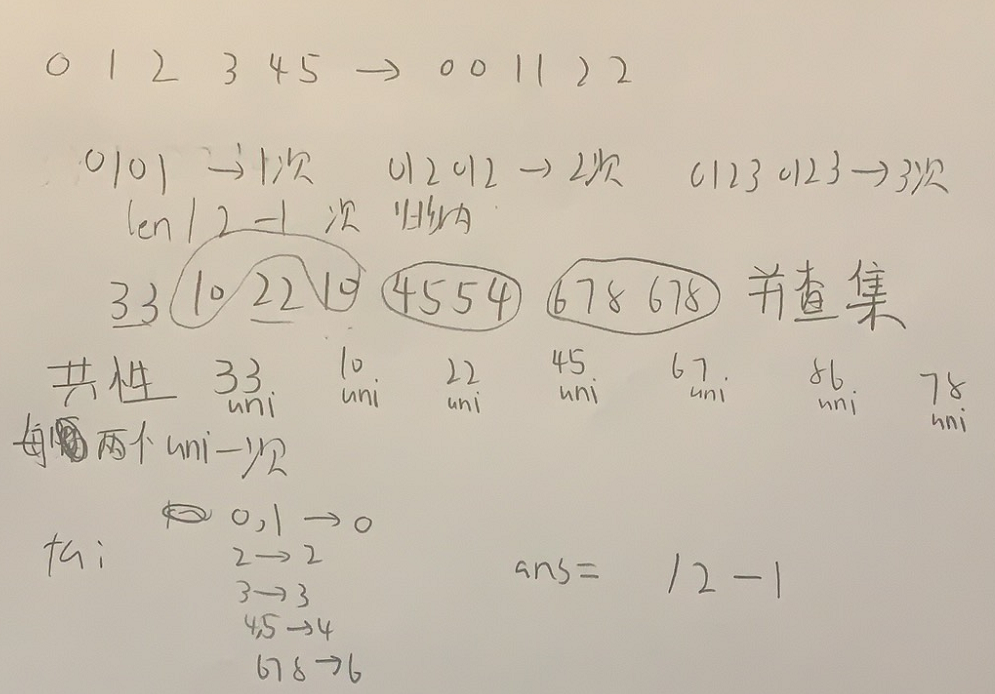 0 1 2 3 4 5 → 0 0 1 1 2 2
0101 → 1次 012 012 → 2次 0123 0123 → 3次
len / 2 - 1 次 归纳
33 10 22 10 4554 678 678 并查集
共性 33 uni 10 uni 22 uni 45 uni 67 uni 86 uni 78 uni
每 两个 uni 一次
0,1 → 0
fa:
2 → 2
3 → 3
ans = / 2 - 1
4,5 → 4
678 → 6